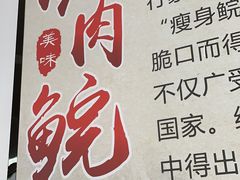 肉
美味
鲩
“瘦身鲩
脆口而得
不仅广受
国家。
中得出